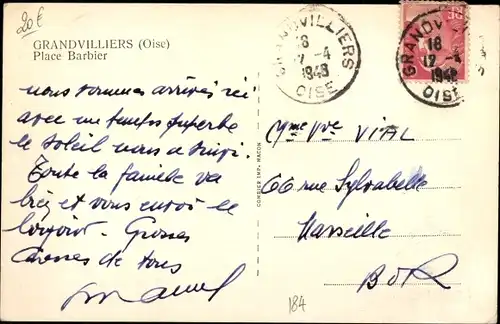 20€
GRANDVILLIERS (Oise)
Place Barbier
nous sommes arrivés ici
avec un temps superbe
le soleil nous a suivi.
Toute la famille va
bien et vous envoi le
bonjour. Grosses
Caresses de tous
GRANDVILLIERS
18
12 -4
1948
OISE
GRANDVILLIERS
18
12 -4
1948
OISE
Mme Vve VIAL
66 rue Sylvabelle
Marseille
B d R
COMBIER IMP. MACON
184